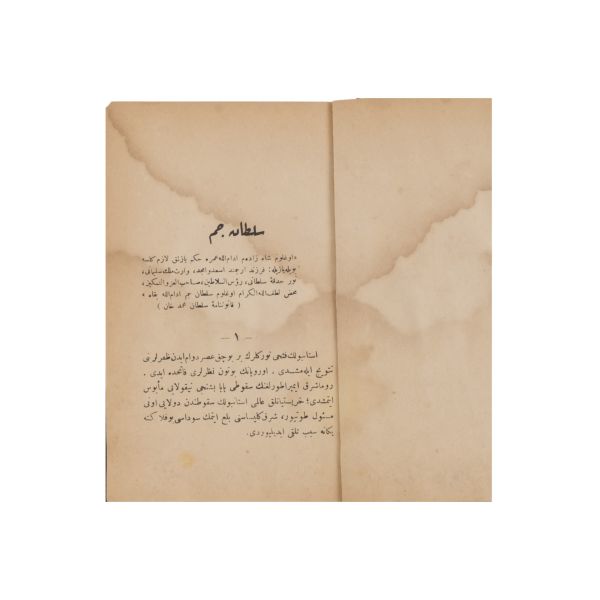 سلطان جم
«اوغلوم شاه زاده‌م ادام‌الله عمره حكم یازلق لازم كلسه
بویله یازیله: فرزند ارجمند اسعد وامجد، وارث ملك سلیمانی،
نور حدقهٔ سلطانی، رؤس السلاطین، صاحب العز والتمكین،
محض لطف‌الله الكرام اوغلوم سلطان جم ادام‌الله بقاه»
( قانوننامهٔ سلطان محمد خان )
— ١ —
استانبولك فتحی توركلرك بر بوچق عصر دوام ایدن ظفرلرنی
تتویج ایله‌مشدی . اوروپانك بوتون نظرلری فاتحده ایدی .
روما شرق ایمپراطورلغنك سقوطی پاپا بشنجی نیقولایی مأیوس
ایتمشدی؛ خریستیانلق عالمی استانبولك سقوطندن دولایی اونی
مسئول طوتیور، شرق كلیساسنی بلع ایتمك سوداسنی بو فلاكته
یكانه سبب تلقی ایدییوردی.